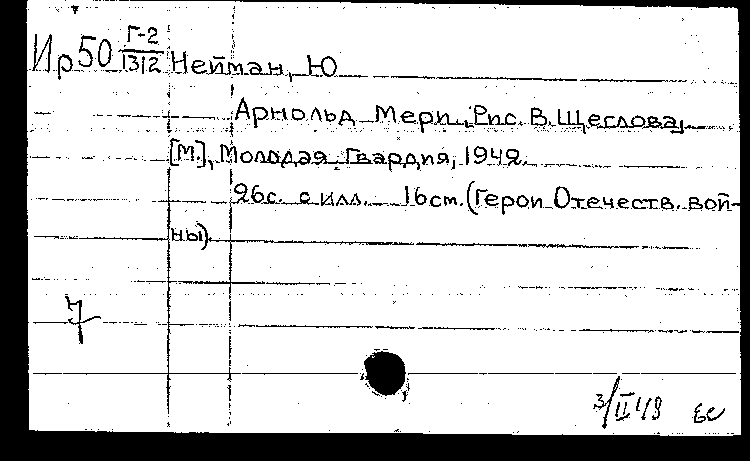 Ир50 Г-2/1312 Нейман, Ю
Арнольд Мери. Рис. В. Щеглова.
[М.], Молодая Гвардия, 1942.
26с. с илл. 16см. (Герои Отечеств. вой-
ны).
7
3/II 48